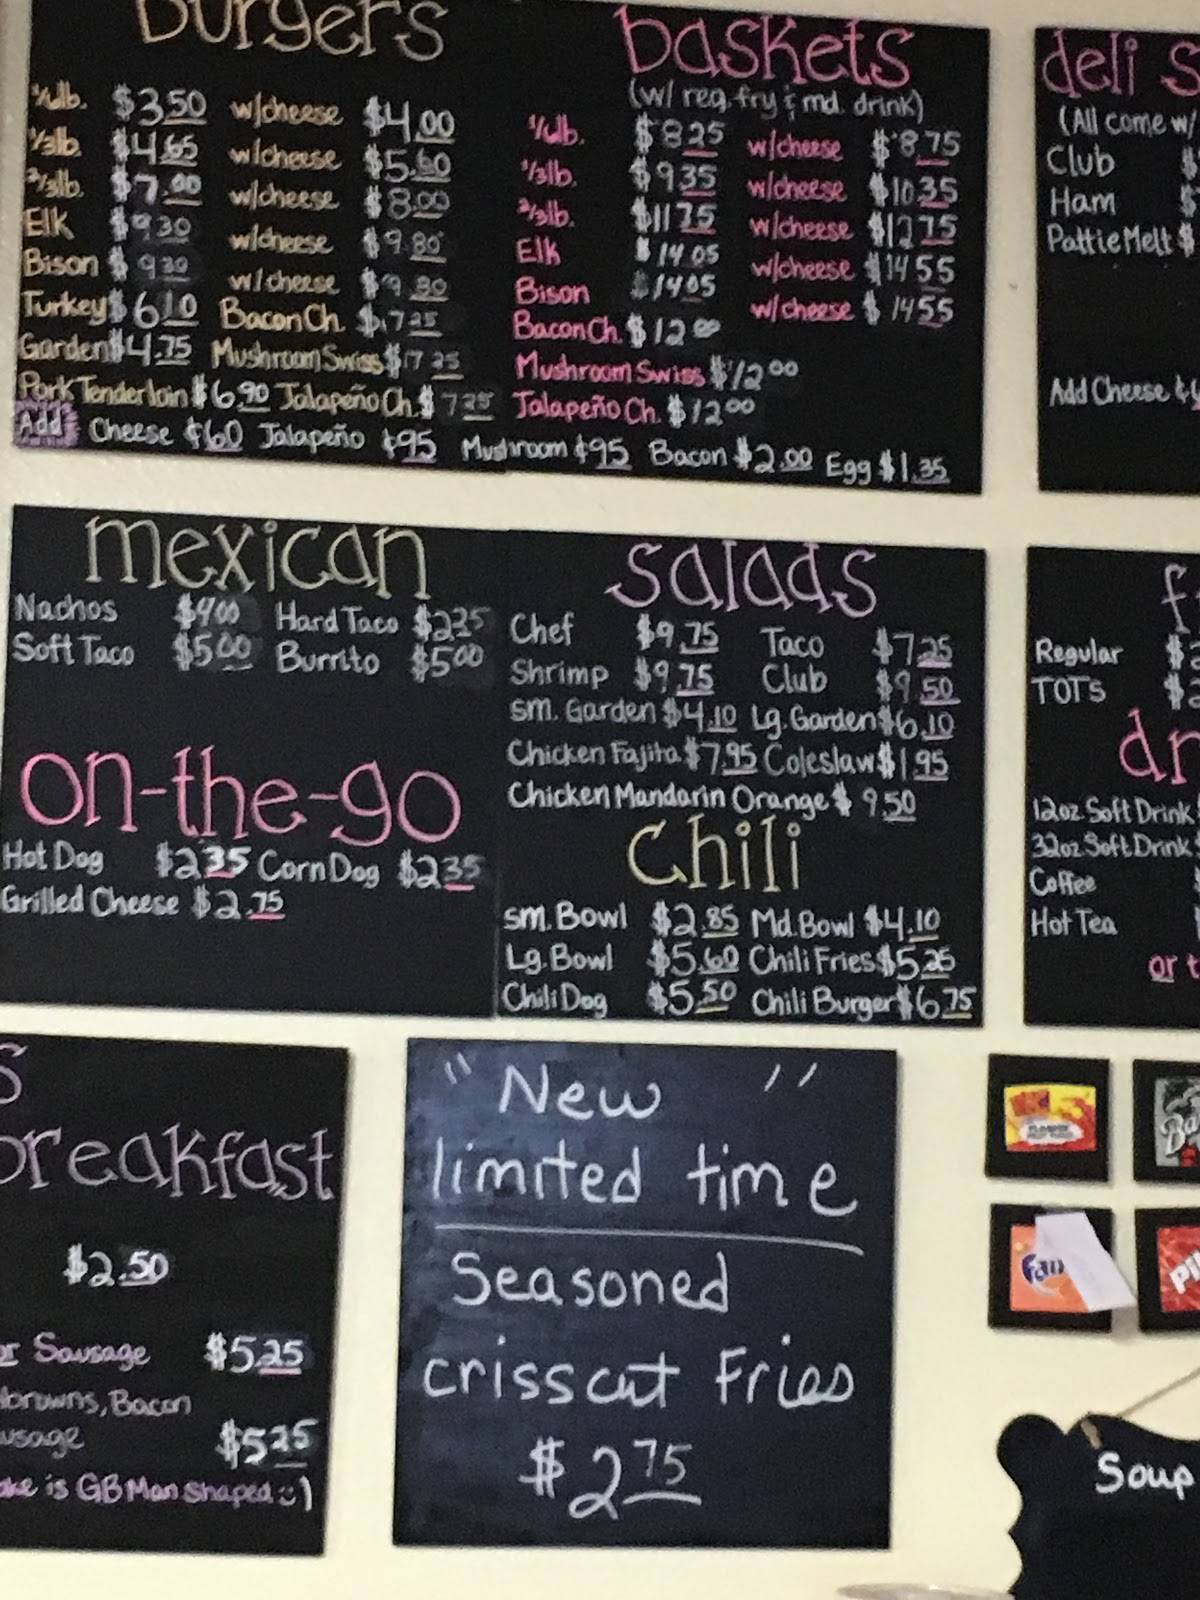 burgers
1/6lb. $3.50 w/cheese $4.00
1/3lb. $4.65 w/cheese $5.60
2/3lb. $7.00 w/cheese $8.00
Elk $9.30 w/cheese $9.80
Bison $9.30 w/cheese $9.80
Turkey $6.10 Bacon Ch. $7.25
Garden $4.75 Mushroom Swiss $7.25
Pork Tenderloin $6.90 Jalapeño Ch. $7.25
Add Cheese ¢60 Jalapeño ¢95 Mushroom ¢95 Bacon $2.00 Egg $1.35
baskets
(w/ reg. fry & md. drink)
1/6lb. $8.25 w/cheese $8.75
1/3lb. $9.35 w/cheese $10.35
2/3lb. $11.75 w/cheese $12.75
Elk $14.05 w/cheese $14.55
Bison $14.05 w/cheese $14.55
Bacon Ch. $12.00
Mushroom Swiss $12.00
Jalapeño Ch. $12.00
deli s
(All come w/
Club
Ham
Pattie Melt $
Add Cheese
mexican
Nachos $4.00 Hard Taco $2.25
Soft Taco $5.00 Burrito $5.00
on-the-go
Hot Dog $2.35 Corn Dog $2.35
Grilled Cheese $2.75
salads
Chef $9.75 Taco $7.25
Shrimp $9.75 Club $9.50
sm. Garden $4.10 Lg. Garden $6.10
Chicken Fajita $7.95 Coleslaw $1.95
Chicken Mandarin Orange $9.50
Chili
sm. Bowl $2.85 Md. Bowl $4.10
Lg. Bowl $5.60 Chili Fries $5.25
Chili Dog $5.50 Chili Burger $6.75
f
Regular $
TOTs $
dr
12oz. Soft Drink
32oz Soft Drink
Coffee
Hot Tea
or t
s
breakfast
$2.50
or Sausage $5.25
browns, Bacon
usage $5.25
ake is GB Man shaped :)
"New"
limited time
Seasoned
crisscut Fries
$2.75
Ba
Fan
Pi
Soup